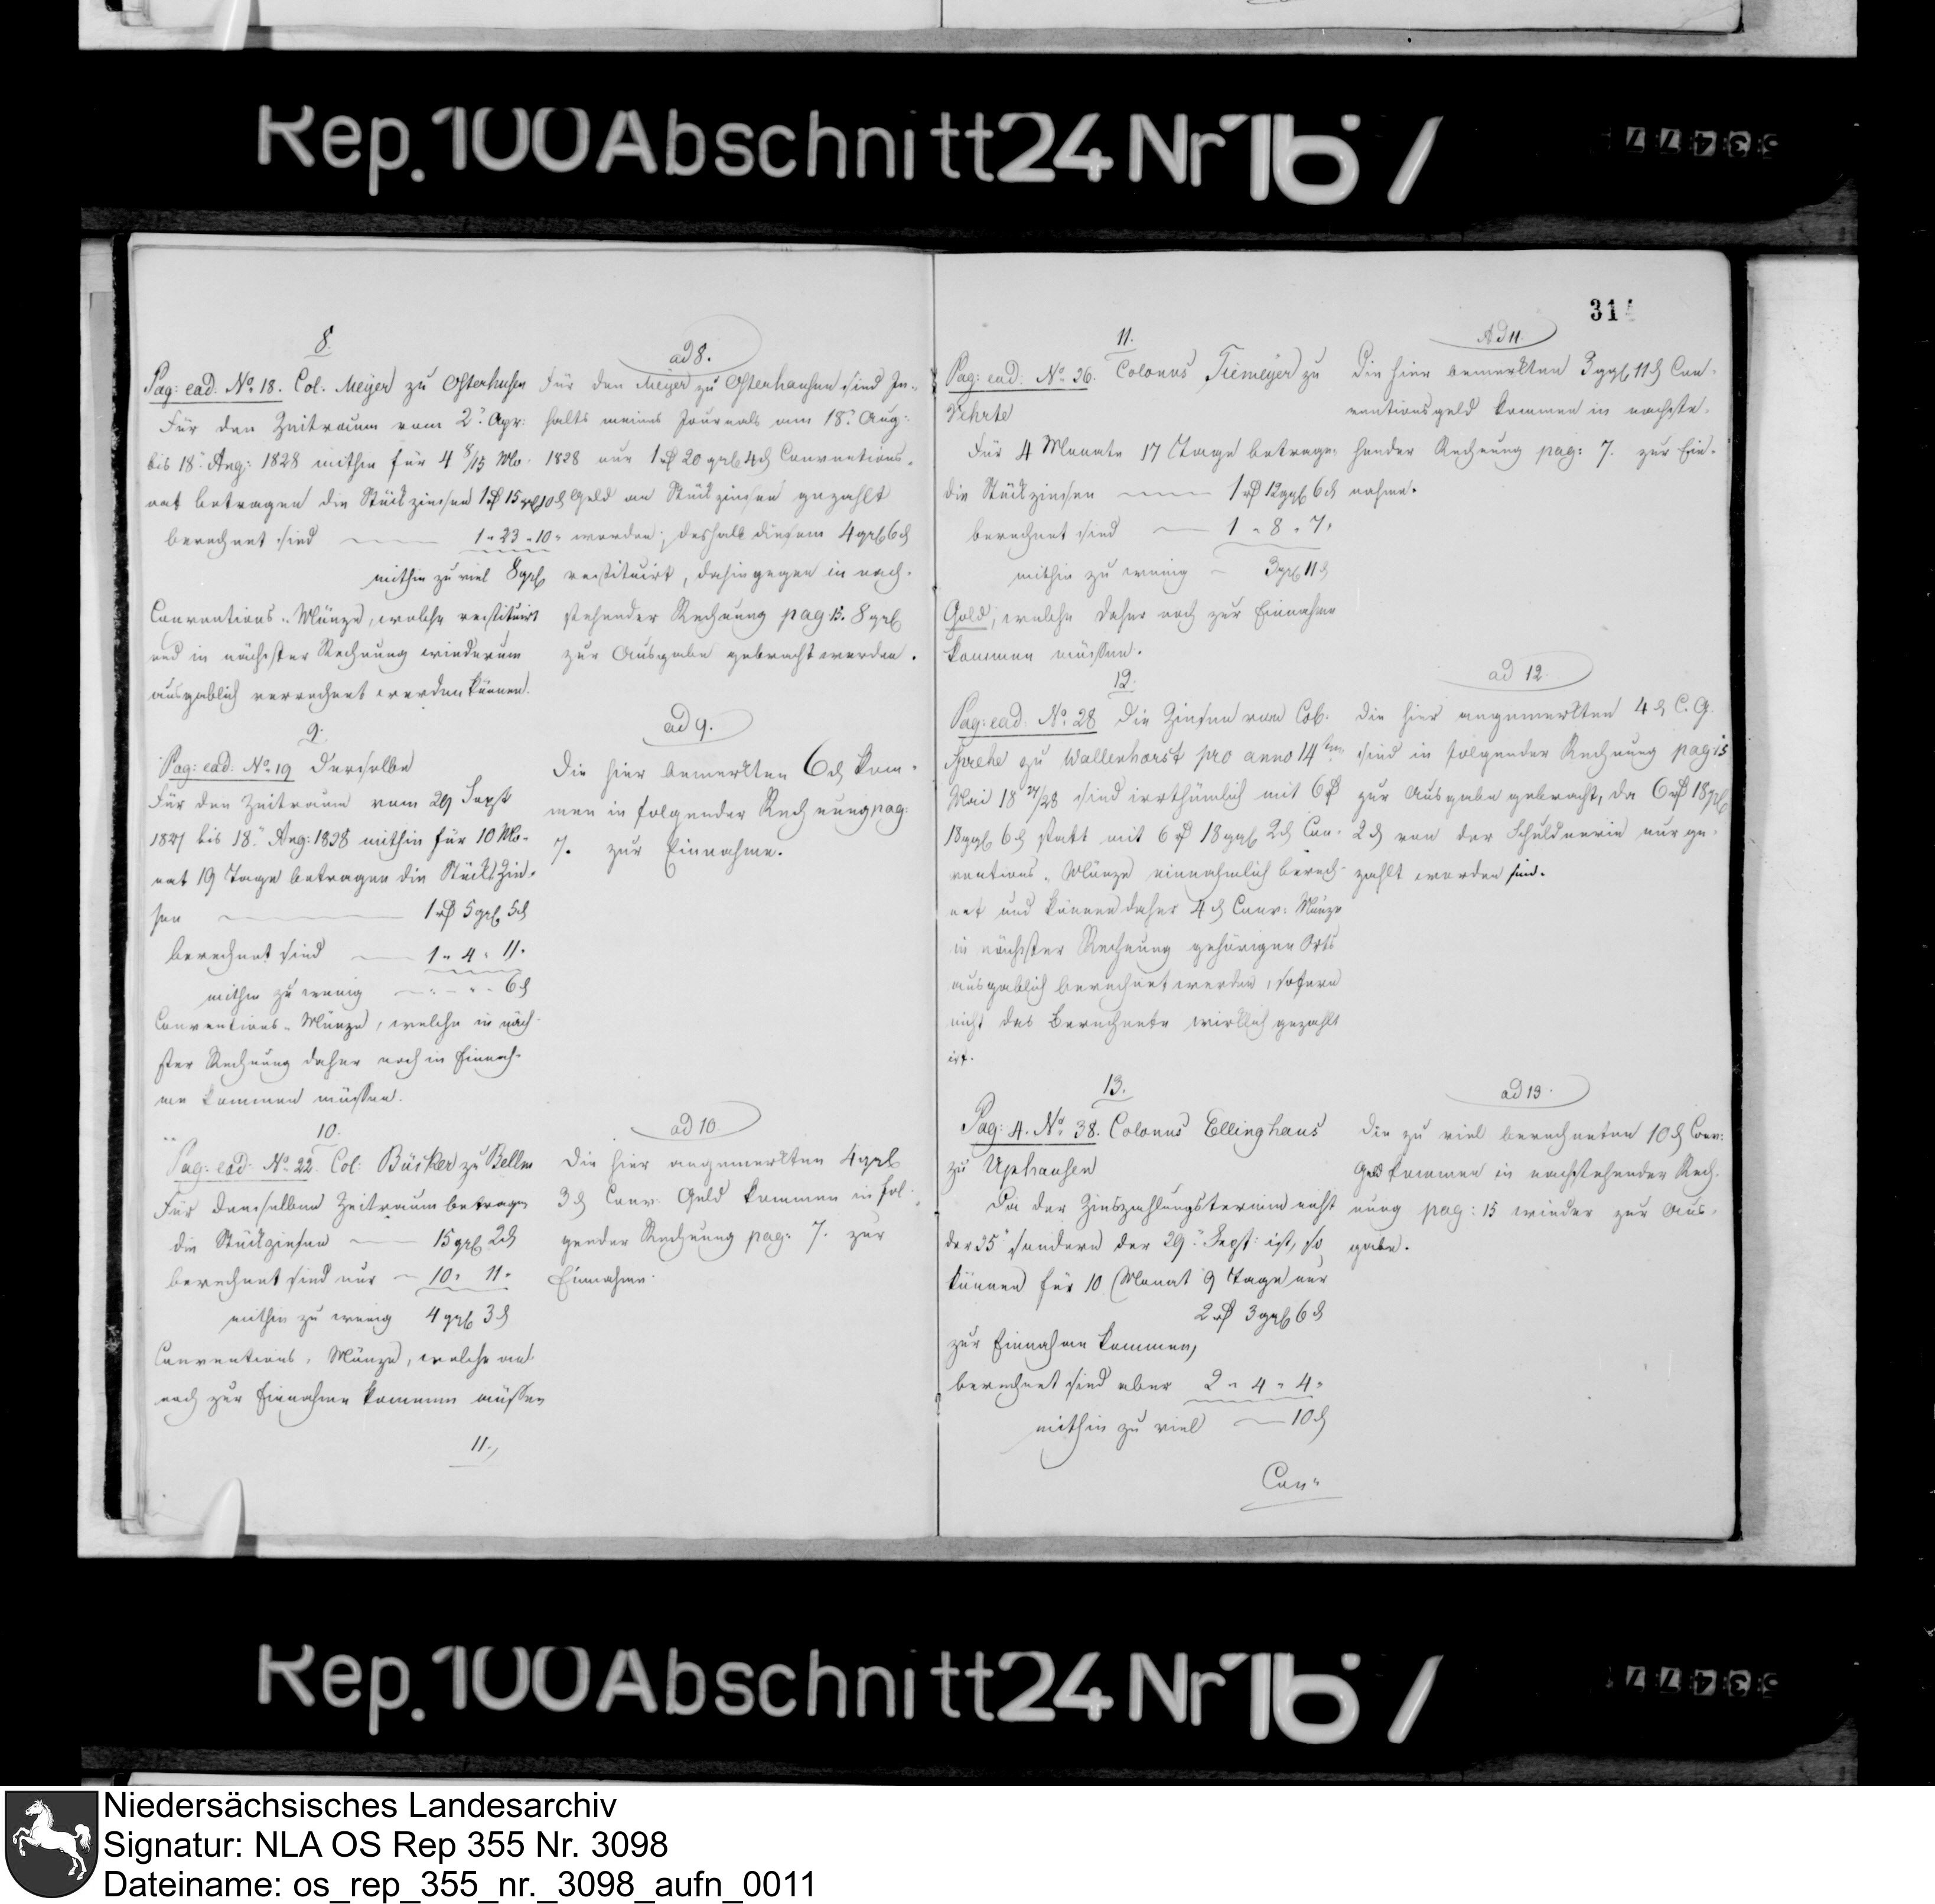 Rep. 100 Abschnitt 24 Nr 167
8.
Pag: ead. No. 18. Col. Meyer zu Osterhusen
Für den Zeitraum vom 2t. Apr:
bis 18t. Aug: 1828 mithin für 4 8/15 Mo-
nat betragen die Stückzinsen 1 rt 15 ggl 10 d
berechnet sind 1 " 23 " 10 "
mithin zu viel 8 ggl
Conventions-Münze, welche restituirt
und in nächster Rechnung wiederum
ausgablich verrechnet werden können.
9.
Pag: ead. No. 19 Derselbe
Für den Zeitraum vom 29 Sept
1827 bis 18t. Aug: 1828 mithin für 10 Mo-
nat 19 Tage betragen die Stückzin-
sen 1 rt 5 ggl 5 d
berechnet sind 1 " 4 " 11 "
mithin zu wenig " " 6 d
Conventions-Münze, welche in näch-
ster Rechnung daher noch in Einnah-
me kommen müssen.
10.
Pag: ead. No. 22. Col: Büsker zu Bellm
Für denselben Zeitraum betragen
die Stückzinsen 15 ggl 2 d
berechnet sind nur 10 " 11 "
mithin zu wenig 4 ggl 3 d
Conventions-Münze, welche
noch zur Einnahme kommen müssen
11.,
ad 8.
Für den Meyer zu Osterhausen sind In-
halts meines Journals am 18t. Aug:
1828 nur 1 rt 20 ggl 4 d Conventions-
Geld an Stückzinsen gezahlt
worden; deshalb diesem 4 ggl 6 d
restituirt, dahingegen in nach-
stehender Rechnung pag. 15. 8 ggl
zur Ausgabe gebracht werden.
ad 9.
Die hier bemerkten 6 d kom-
men in folgender Rechnung pag:
7. zur Einnahme.
ad 10
Die hier angemerkten 4 ggl
3 d Conv. Geld kommen in fol-
gender Rechnung pag: 7. zur
Einnahme.
31
11.
Pag: ead: No. 26. Colonus Tiemeyer zu
Vehrte
Für 4 Monate 17 Tage betragen
die Stückzinsen 1 rt 12 ggl 6 d
berechnet sind 1 " 8 " 7 "
mithin zu wenig 3 ggl 11 d
Gold, welche daher noch zur Einnahme
kommen müssen.
12.
Pag: ead. No. 28 Die Zinsen vom Col.
Sprehe zu Wallenhorst pro anno 14ten
Mai 18 27/28 sind irrthümlich mit 6 rt
18 ggl 6 d statt mit 6 rt 18 ggl 2 d Con-
ventions-Münze einnahmlich berech-
net und können daher 4 d Conv: Münze
in nächster Rechnung gehörigen Orts
ausgablich berechnet werden, sofern
nicht das Berechnete wirklich gezahlt
ist.
13.
Pag: 4. No. 38. Colonus Ellinghaus
zu Uphausen
Da der Zinszahlungstermin nicht
der 25t sondern der 29t. Sept: ist, so
können für 10 Monat 9 Tage nur
2 rt 3 ggl 6 d
zur Einnahme kommen,
berechnet sind aber 2 " 4 " 4 "
mithin zu viel 10 d
Con-
Ad 11.
Die hier bemerkten 3 ggl 11 d Con-
ventionsgeld kommen in nachste-
hender Rechnung pag: 7. zur Ein-
nahme.
ad 12
Die hier angemerkten 4 d C. G.
sind in folgender Rechnung pag 15
zur Ausgabe gebracht, da 6 rt 18 ggl
2 d von der Schuldnerin nur ge-
zahlt worden sind.
ad 13.
Die zu viel berechneten 10 d Conv:
Geld kommen in nachstehender Rech-
nung pag: 15 wieder zur Aus-
gabe.
Rep. 100 Abschnitt 24 Nr 167
Niedersächsisches Landesarchiv
Signatur: NLA OS Rep 355 Nr. 3098
Dateiname: os_rep_355_nr._3098_aufn_0011